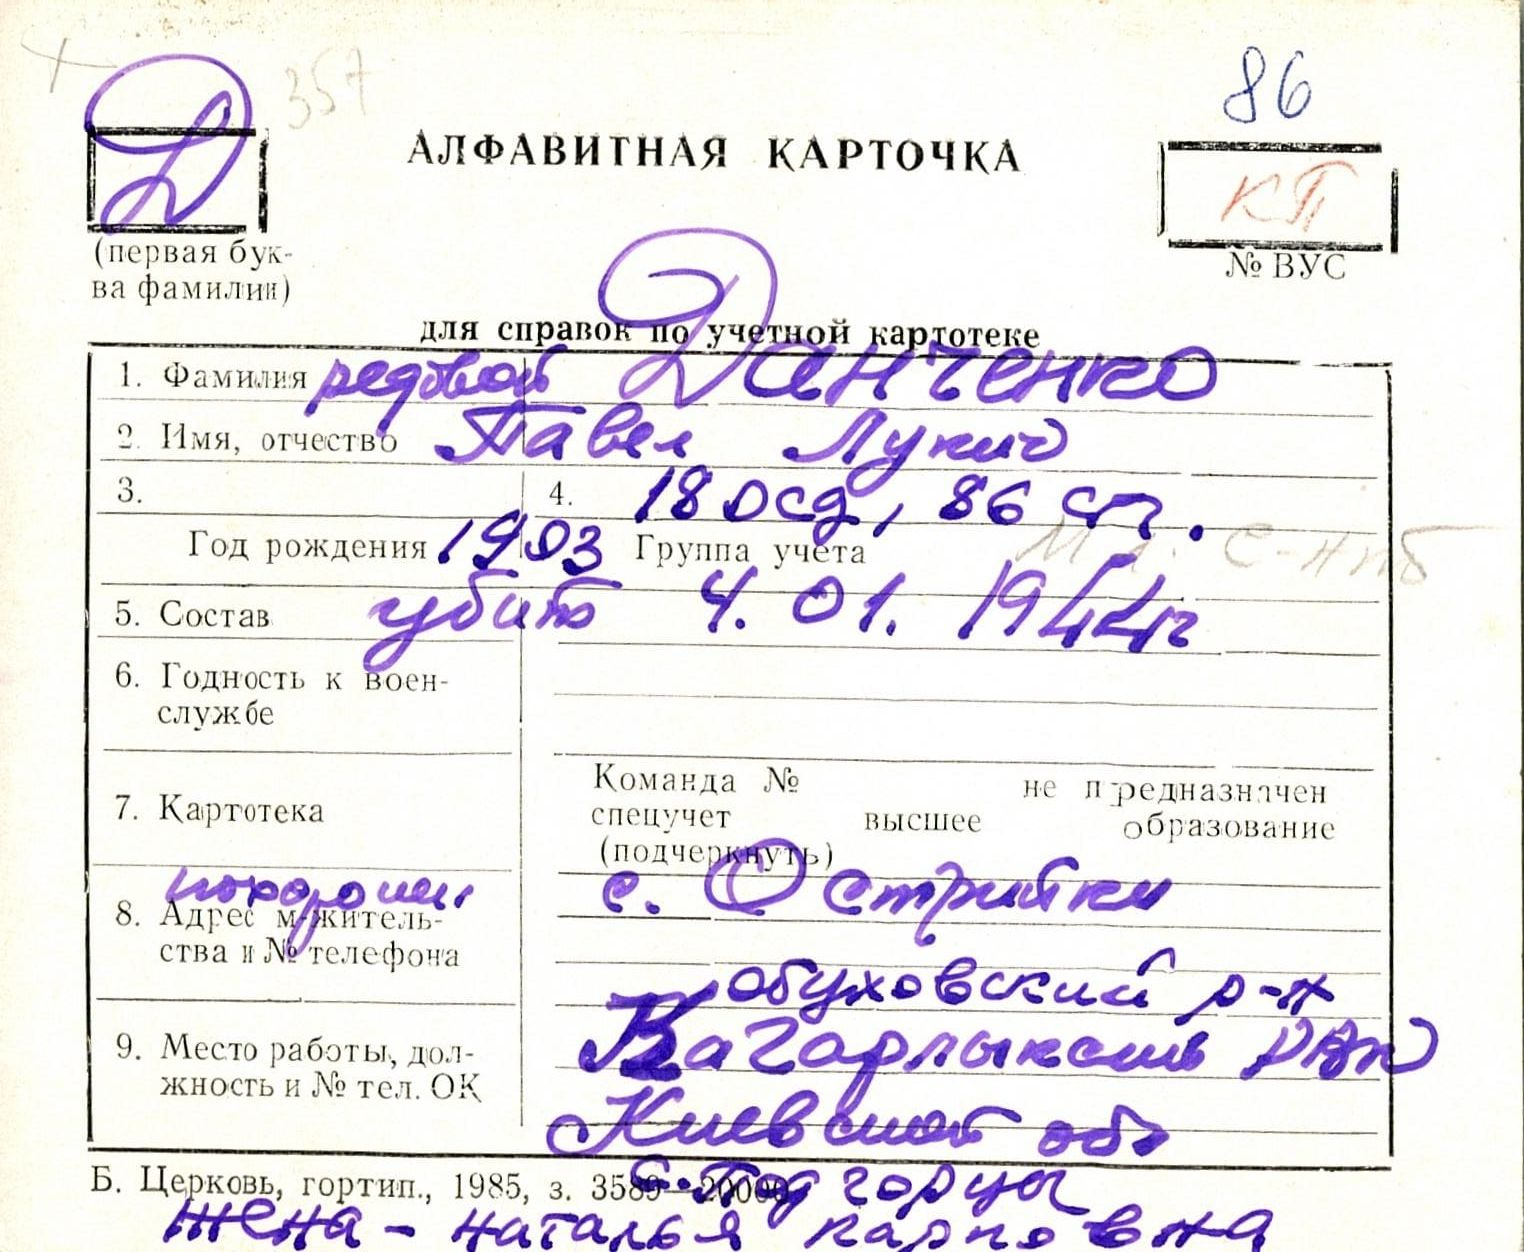 Д 357 86
АЛФАВИТНАЯ КАРТОЧКА
КП
(первая бук-
ва фамилии)
№ ВУС
для справок по учетной картотеке
1. Фамилия рядовой Данченко
2. Имя, отчество Павел Лукич
3. 4. 18 осд, 86 сп.
Год рождения 1903 Группа учета
5. Состав убит 4.01.1944г
6. Годность к воен-
службе
Команда № не предназначен
7. Картотека спецучет высшее образование
(подчеркнуть)
похорон. с. Острийки
8. Адрес м-житель-
ства и № телефона
Обуховский р-н
9. Место работы, дол-
жность и № тел. ОК
Кагарлыкским РВК
Киевской обл
Б. Церковь, гортип., 1985, з. 3589—20000 с. Подгорцы
жена - Наталья Карповна